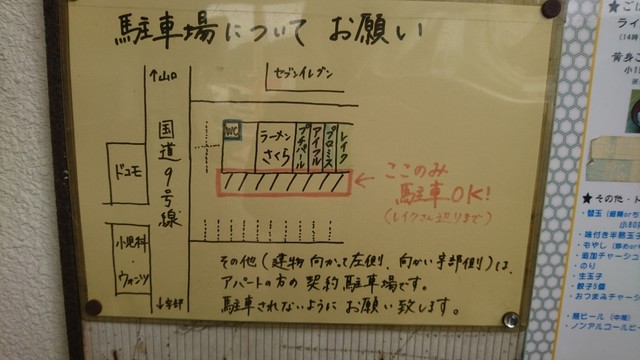 駐車場について お願い
↑山口
セブンイレブン
国道9号線
WC
ラーメン
さくら
プチバール
アイフル
プロミス
レイク
ドコモ
小児科
・
ウォンツ
↓宇部
← ここのみ
駐車OK!
(レイクさん辺りまで)
その他(建物 向かって左側、向かい宇部側)は、
アパートの方の契約駐車場です。
駐車されないようにお願い致します。
★ごは
ライ
(14時
替身ご
小1
★その他・ト
・替玉
・味付き半熟玉子
・もやし
・追加チャーシュ
・のり
・生玉子
・餃子5個
・おつまみチャーシ
・瓶ビール(中瓶)
・ノンアルコールビー